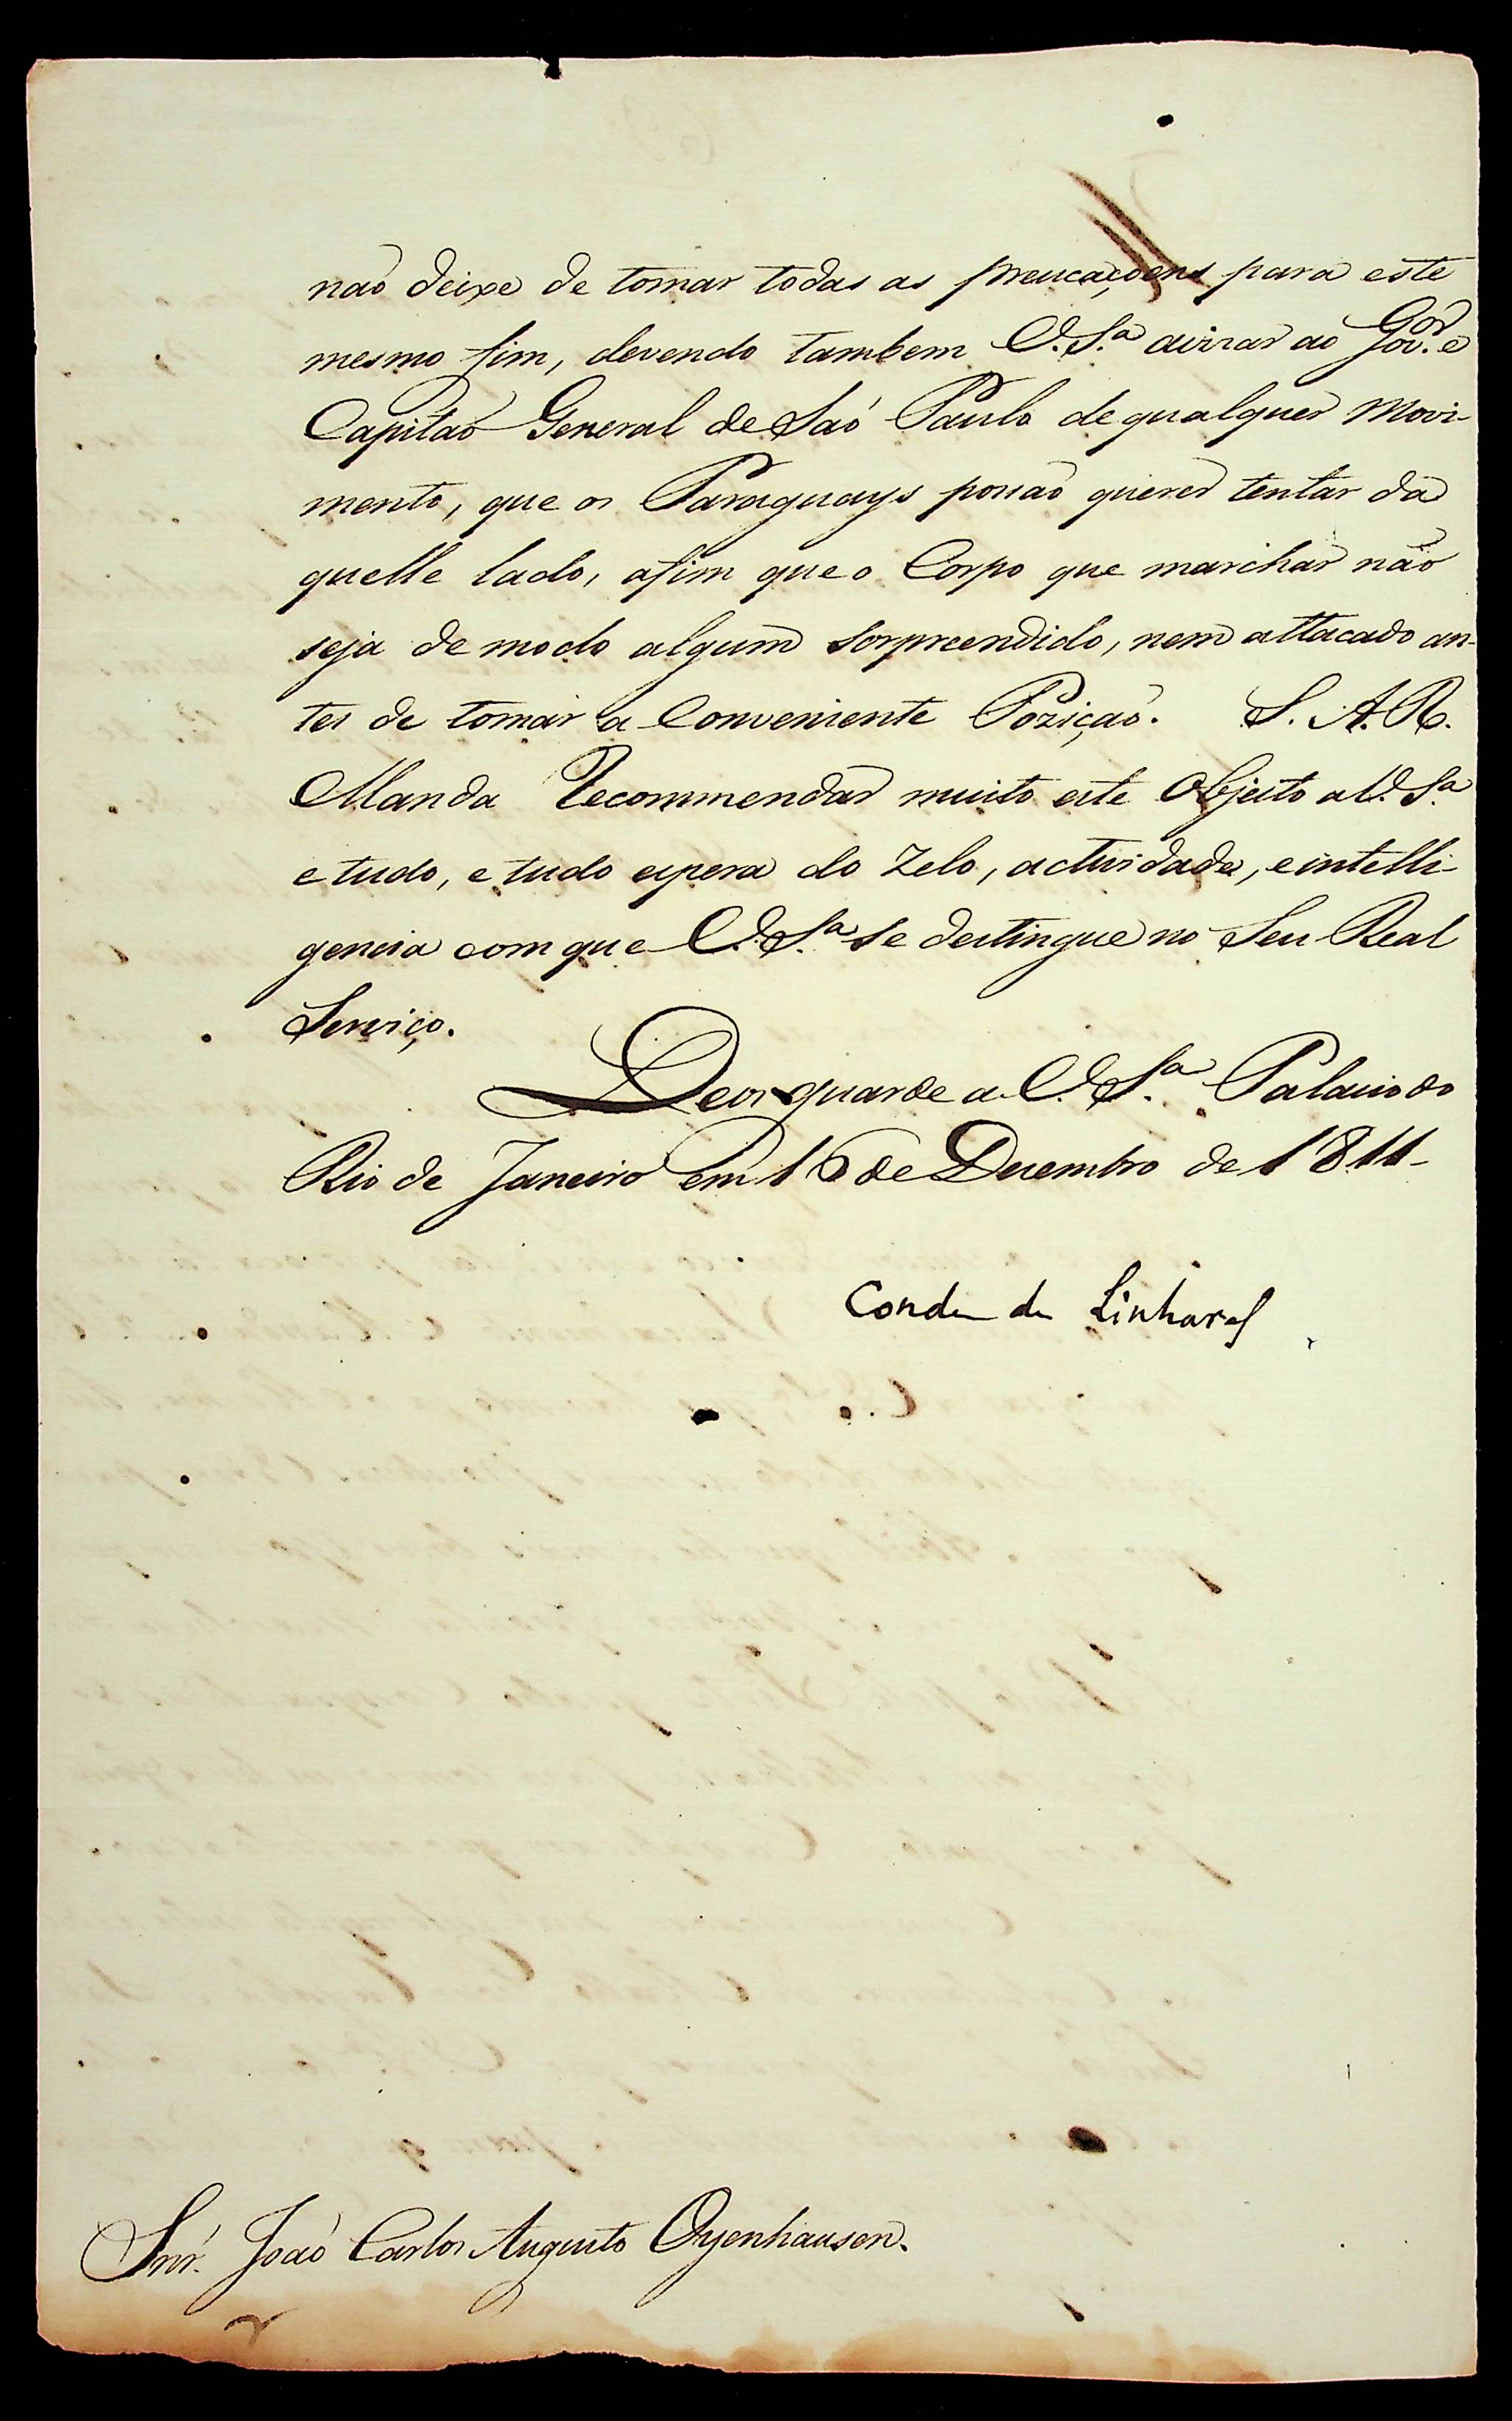 naõ deixe de tomar todas as preucaçoens para este
mesmo fim, devendo tambem V. S.ª avizar ao Gov.ᵒʳ e
Capitaõ General de Saõ Paulo de qualquer Movi-
mento, que os Paraguays possaõ querer tentar da
quelle lado, afim que o Corpo que marchar não
seja de modo algum sorpreendido, nem attacado an-
tes de tomar a Conveniente Poziçaõ. S. A. R.
Manda Recommendar muito este Objecto a V. S.ª
e tudo, e tudo espera do Zelo, actividade, e intelli-
gencia com que V. S.ª se destingue no Seu Real
Serviço.
Deos guarde a V. S.ª Palacio do
Rio de Janeiro em 16 de Dezembro de 1811-
Conde de Linhares
Snr. Joaõ Carlos Augusto Oyenhausen.